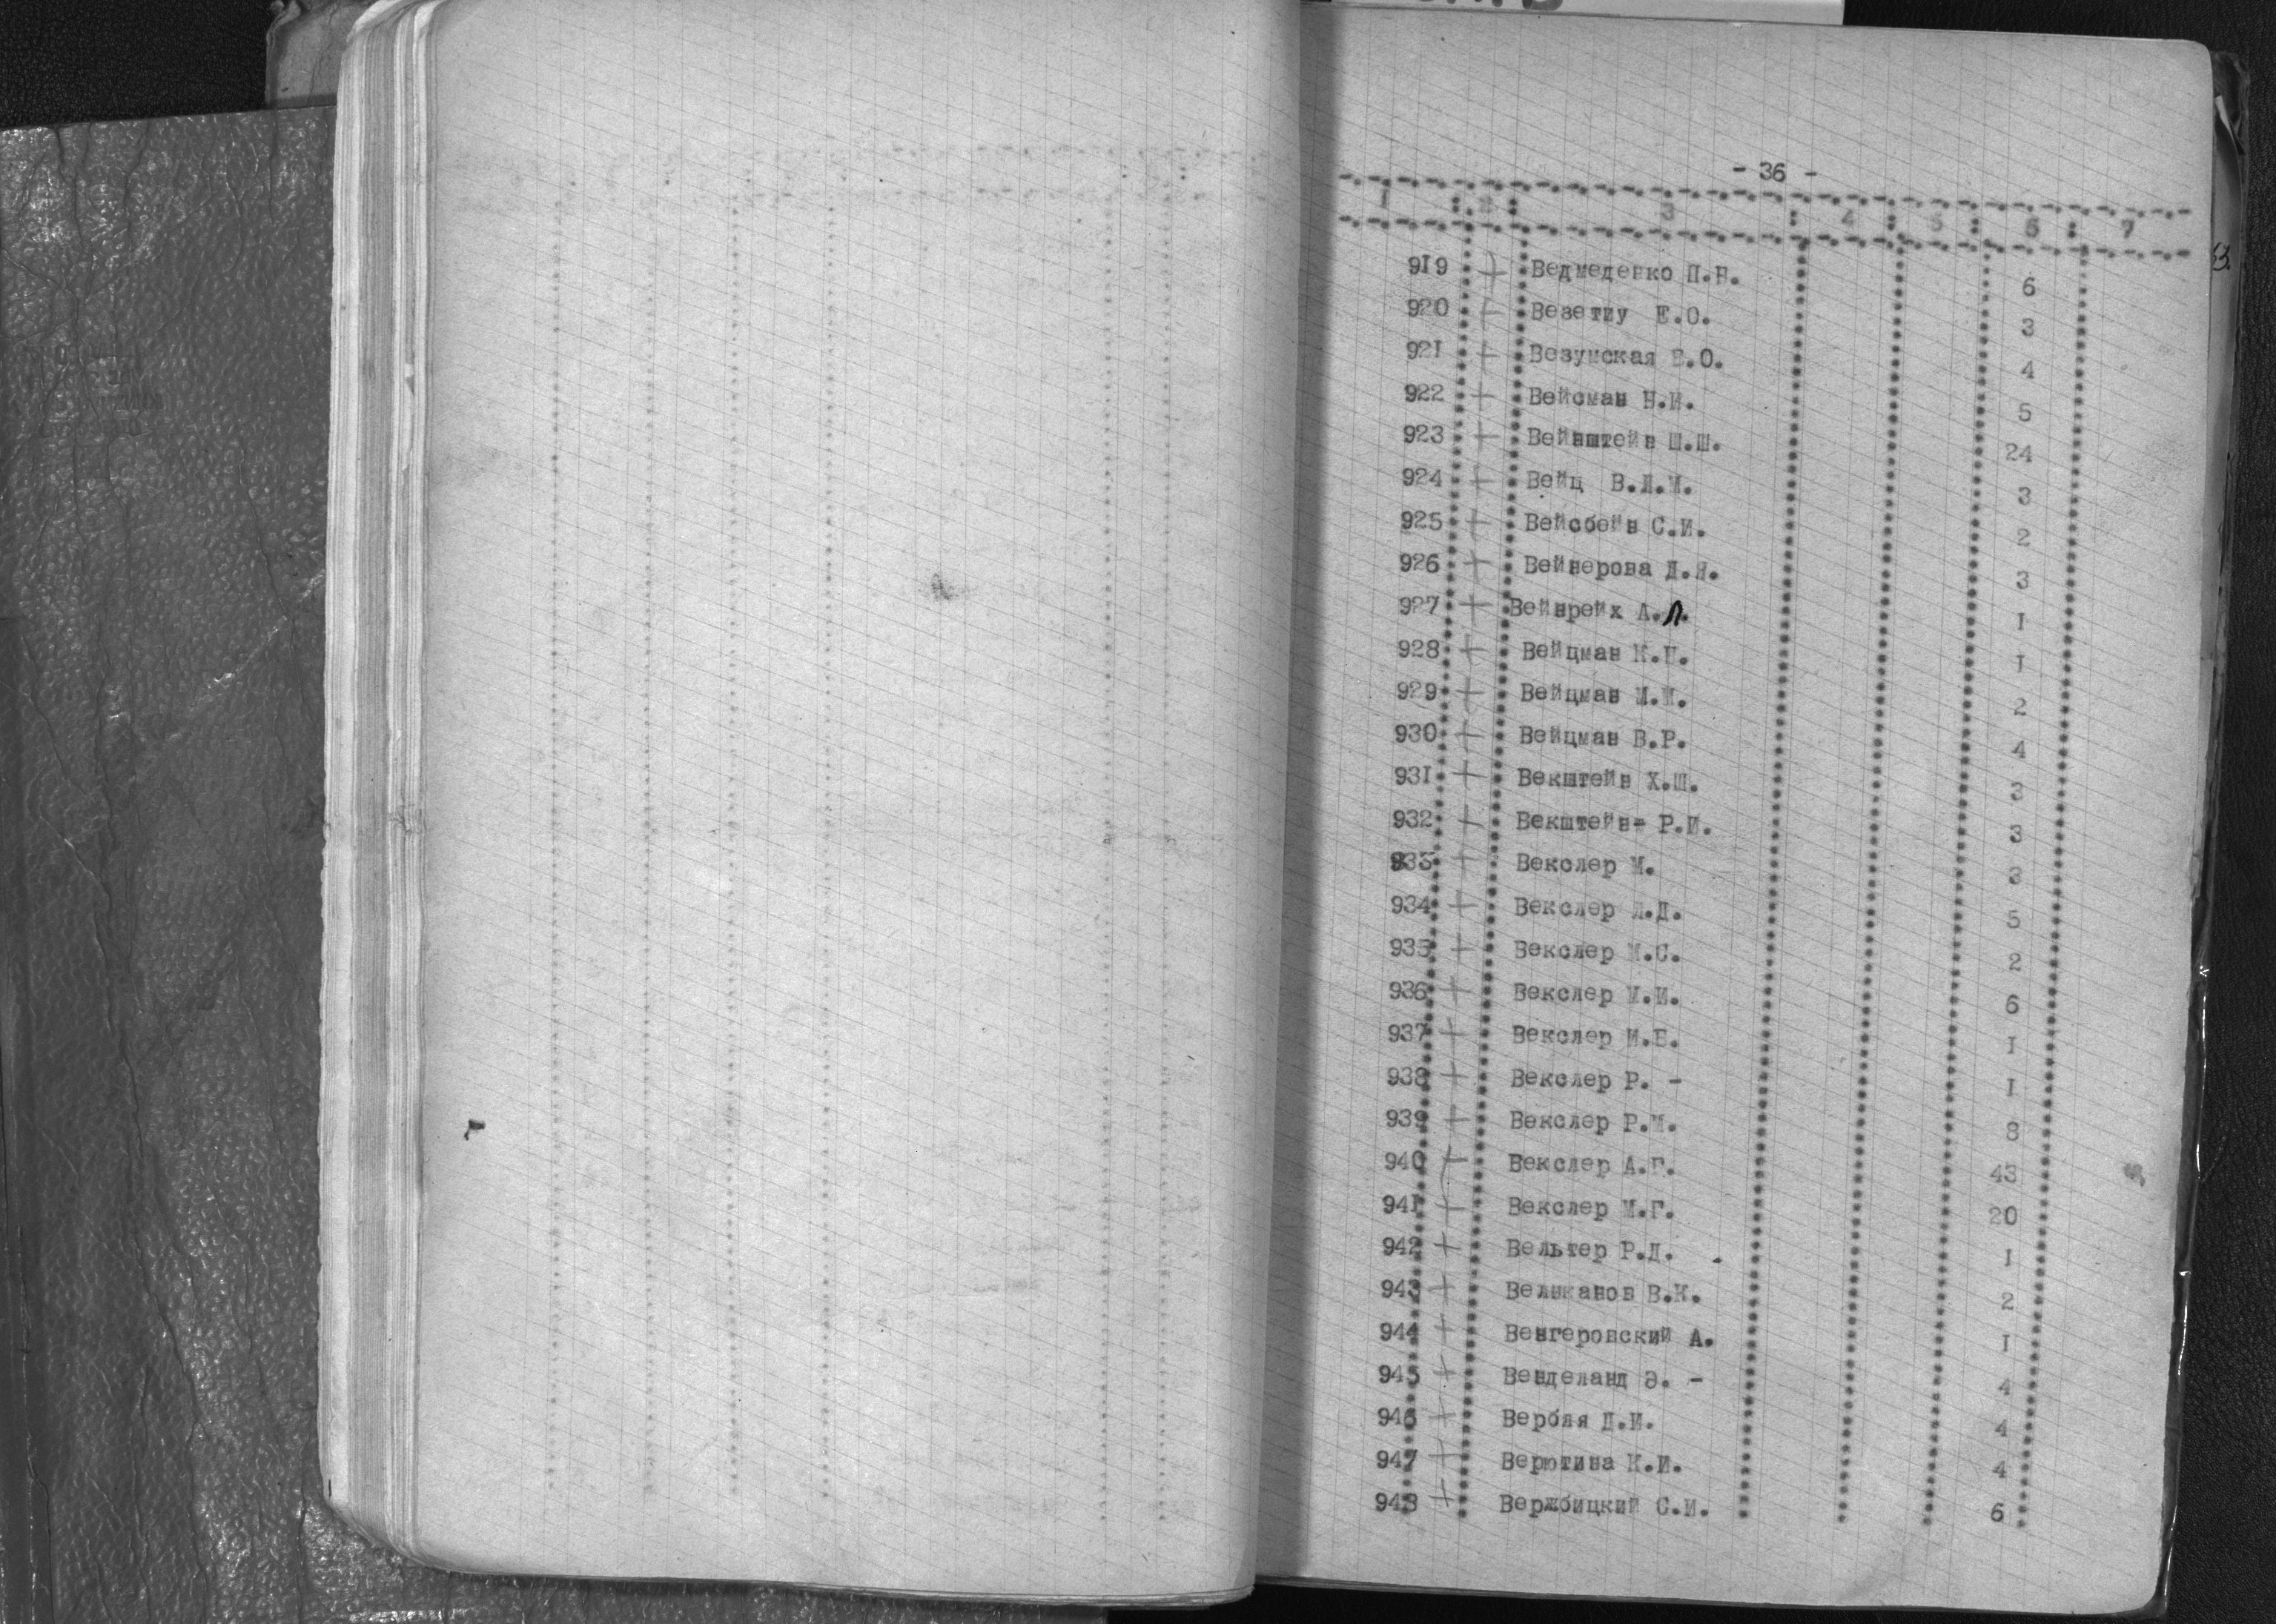 - 36 -
1 : 2 : 3 : 4 : 5 : 6 : 7
919 + Ведмеденко П.Н. 6
920 + Везетиу Е.О. 3
921 + Везумская В.О. 4
922 + Вейсман Н.И. 5
923 + Вейнштейн Ш.Ш. 24
924 + Вейц В.Л.М. 3
925 + Вейсбейн С.И. 2
926 + Вейнерова Д.Я. 3
927 + Вейнрейх А.Л. I
928 + Вейцман К.Н. I
929 + Вейцман М.М. 2
930 + Вейцман В.Р. 4
931 + Векштейн Х.Ш. 3
932 + Векштейн- Р.И. 3
933 + Векслер М. 3
934 + Векслер Л.Д. 5
935 + Векслер М.С. 2
936 + Векслер М.И. 6
937 + Векслер И.Б. I
938 + Векслер Р. - I
939 + Векслер Р.М. 8
940 + Векслер А.Г. 43
941 + Векслер М.Г. 20
942 + Вельтер Р.Д. I
943 + Великанов В.К. 2
944 + Венгеровский А. I
945 + Венделанд Э. - 4
946 + Вербля Д.И. 4
947 + Верютина К.И. 4
948 + Вержбицкий С.И. 6